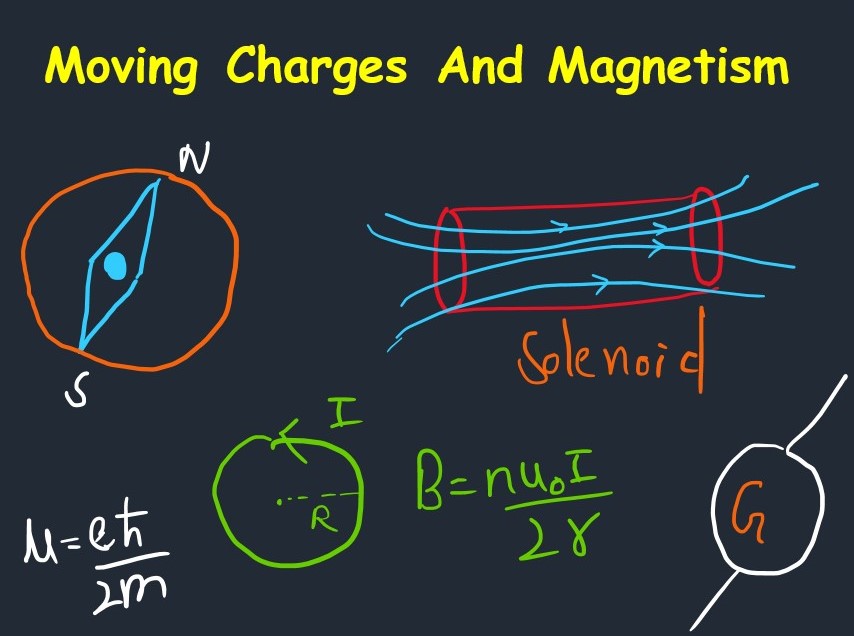 Moving Charges And Magnetism
N
S
Solenoid
I
R
B = nu₀I / 2r
G
M = eħ / 2m